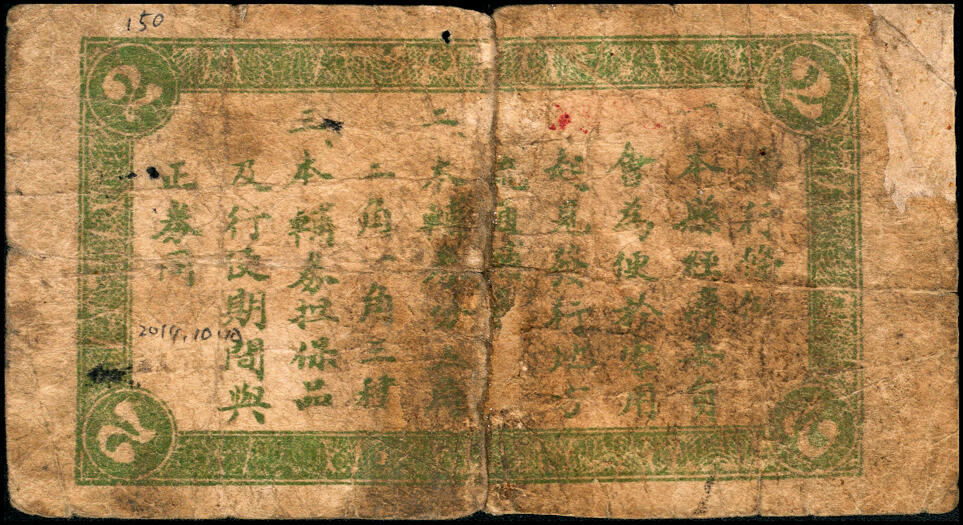 150
行條例
本縣經濟委員
會為便於零用
起見發行地方
流通
二、本輔券分五角
二角一角三種
三、本輔券担保品
及行使期間與
正券同
2
2
2
2